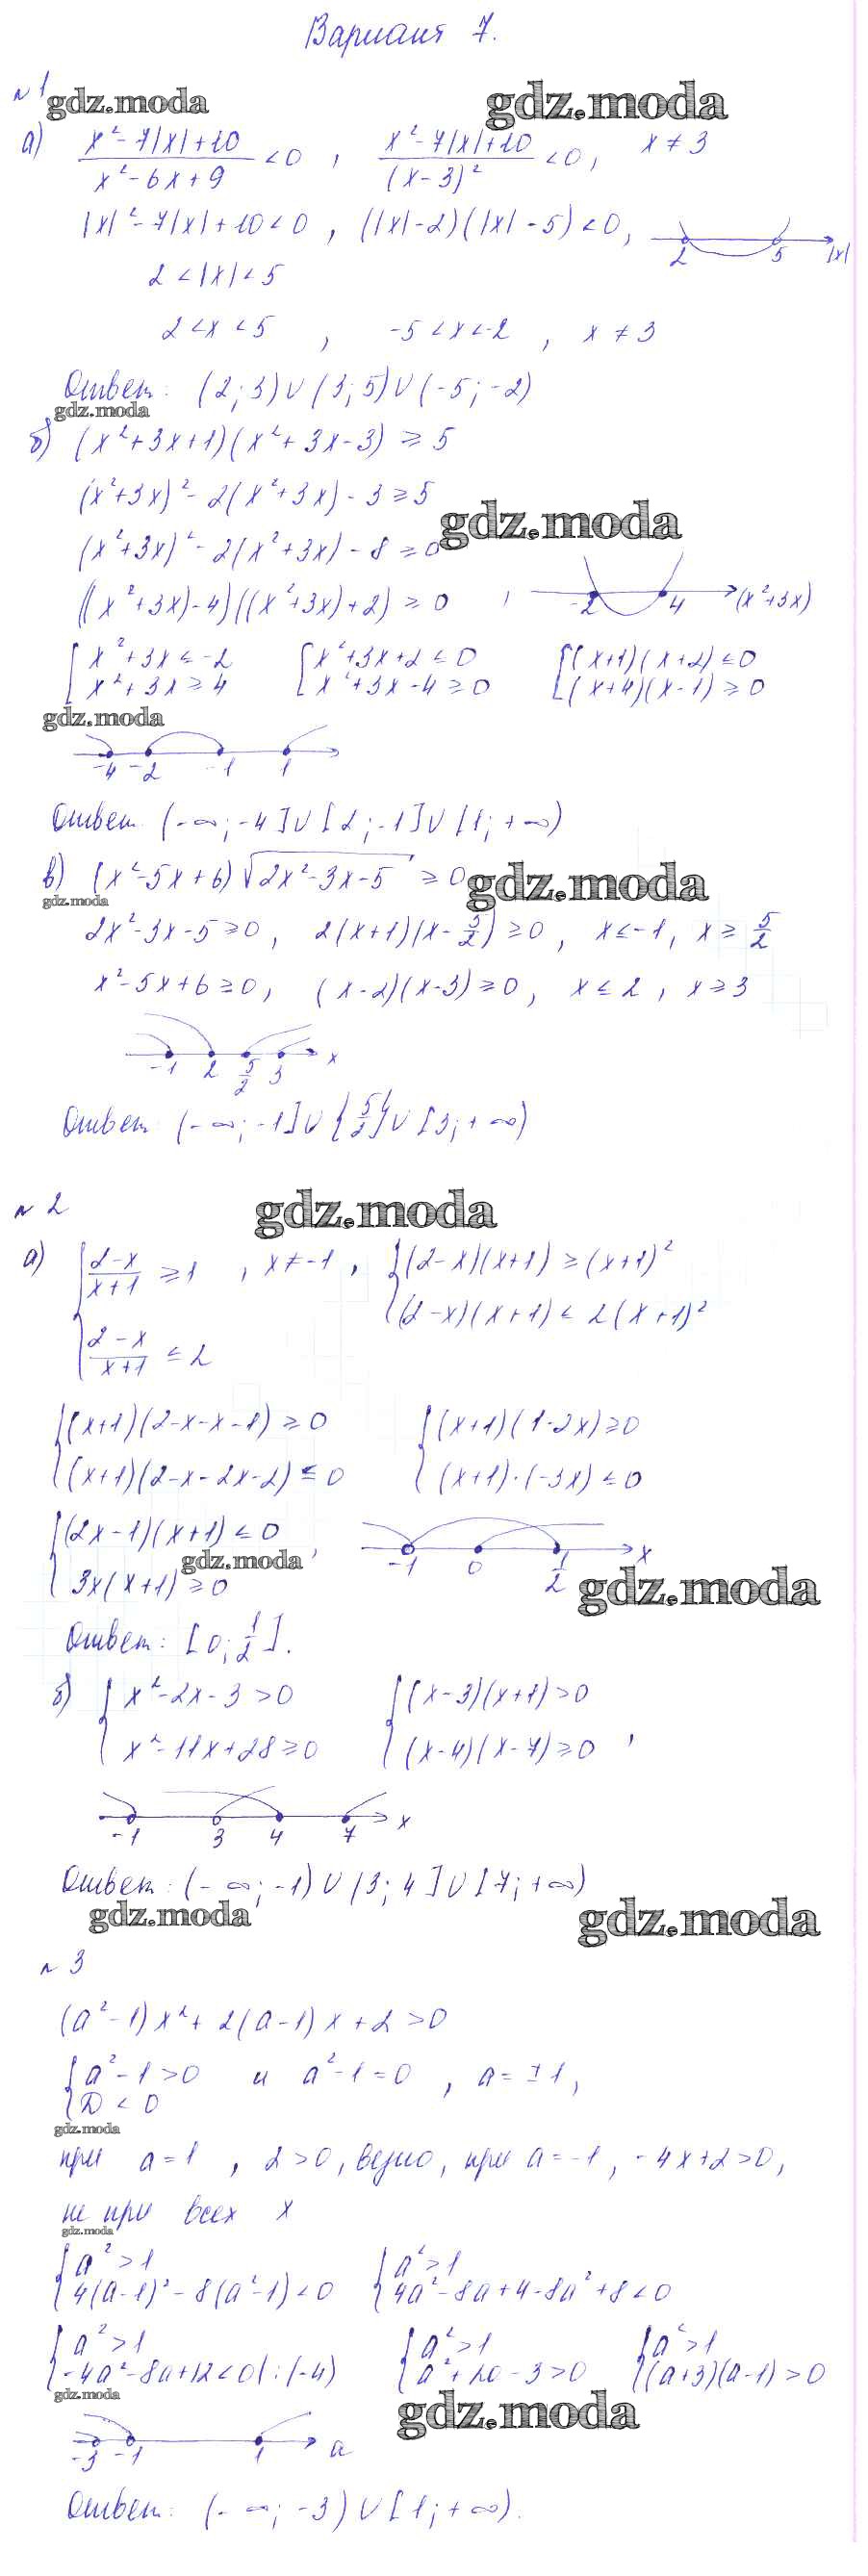 Вариант 7.
№1
gdz.moda gdz.moda
а) (x²-7|x|+10)/(x²-6x+9) <0 , (x²-7|x|+10)/(x-3)² <0, x≠3
|x|²-7|x|+10<0 , (|x|-2)(|x|-5)<0,
2 5 |x|
2<|x|<5
2<x<5 , -5<x<-2 , x≠3
Ответ: (2;3)∪(3;5)∪(-5;-2)
gdz.moda
б) (x²+3x+1)(x²+3x-3)≥5
(x²+3x)²-2(x²+3x)-3≥5
gdz.moda
(x²+3x)²-2(x²+3x)-8≥0
((x²+3x)-4)((x²+3x)+2)≥0 , -2 4 (x²+3x)
[x²+3x≤-2 [x²+3x+2≤0 [(x+1)(x+2)≤0
[x²+3x≥4 [x²+3x-4≥0 [(x+4)(x-1)≥0
gdz.moda
-4 -2 -1 1
Ответ: (-∞;-4]∪[2;-1]∪[1;+∞)
в) (x²-5x+6)√(2x²-3x-5) ≥0
gdz.moda gdz.moda
2x²-3x-5≥0, 2(x+1)(x-5/2)≥0, x≤-1, x≥5/2
x²-5x+6≥0, (x-2)(x-3)≥0, x≤2, x≥3
-1 2 5/2 3 x
Ответ: (-∞;-1]∪{5/2}∪[3;+∞)
№2
gdz.moda
а) {(2-x)/(x+1) ≥1 , x≠-1 , {(2-x)(x+1)≥(x+1)²
{(2-x)/(x+1) ≤2 {(2-x)(x+1)≤2(x+1)²
{(x+1)(2-x-x-1)≥0 {(x+1)(1-2x)≥0
{(x+1)(2-x-2x-2)≤0 {(x+1)·(-3x)≤0
{(2x-1)(x+1)≤0 ,
{3x(x+1)≥0
-1 0 1/2 x
gdz.moda gdz.moda
Ответ: [0;1/2].
б) {x²-2x-3>0 {(x-3)(x+1)>0
{x²-11x+28≥0 {(x-4)(x-7)≥0 ,
-1 3 4 7 x
Ответ: (-∞;-1)∪(3;4]∪[7;+∞)
gdz.moda gdz.moda
№3
(a²-1)x²+2(a-1)x+2>0
{a²-1>0 и a²-1=0 , a=±1,
{D<0
gdz.moda
при a=1 , 2>0, верно, при a=-1, -4x+2>0,
не при всех x
gdz.moda
{a²>1 {a²>1
{4(a-1)²-8(a²-1)<0 {4a²-8a+4-8a²+8<0
{a²>1 {a²>1 {a²>1
{-4a²-8a+12<0|:(-4) {a²+2a-3>0 {(a+3)(a-1)>0
gdz.moda gdz.moda
-3 -1 1 a
Ответ: (-∞;-3)∪[1;+∞).